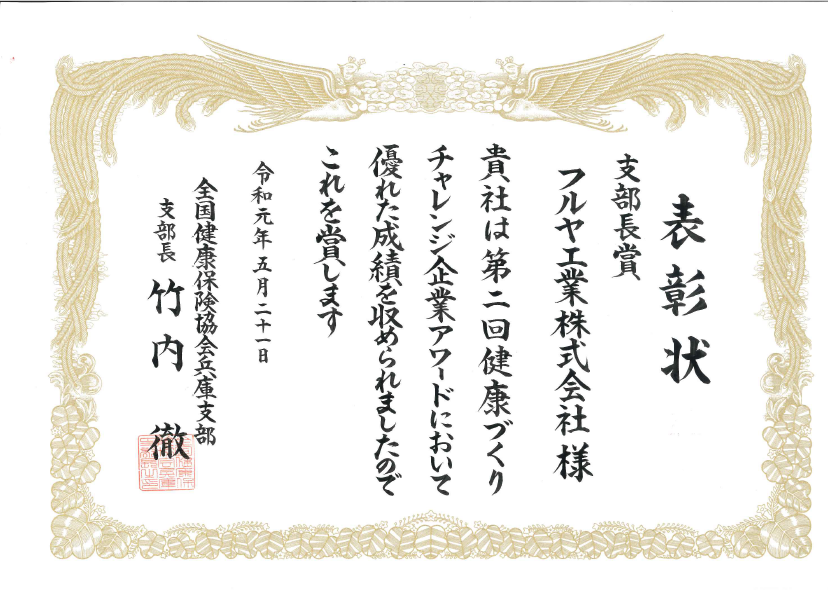 表彰状
支部長賞
フルヤ工業株式会社 様
貴社は第二回健康づくり
チャレンジ企業アワードにおいて
優れた成績を収められましたので
これを賞します
令和元年五月二十一日
全国健康保険協会兵庫支部
支部長 竹内 徹